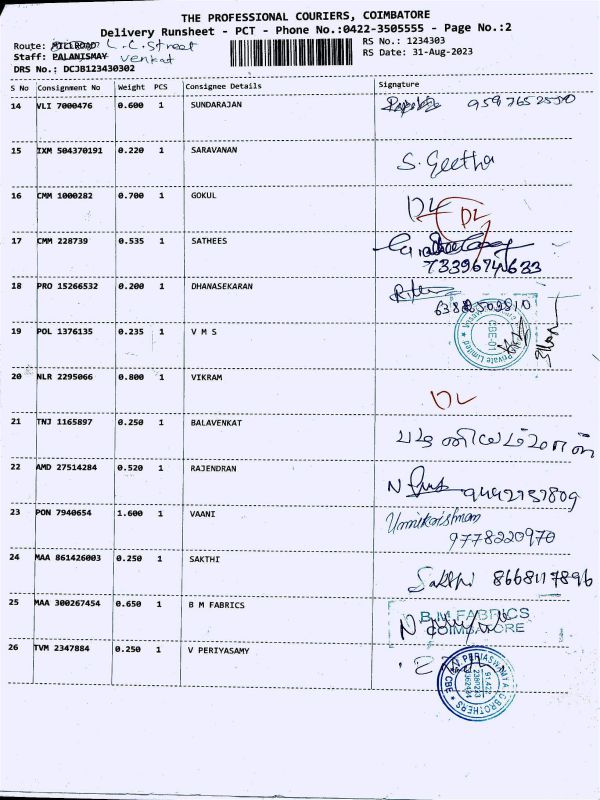 THE PROFESSIONAL COURIERS, COIMBATORE
Delivery Runsheet - PCT - Phone No.:0422-3505555 - Page No.:2
Route: MILLROAD L.C. Street
RS No.: 1234303
Staff: PALANISMAY Venkat
RS Date: 31-Aug-2023
DRS No.: DCJB123430302
S No Consignment No Weight PCS Consignee Details Signature
14 VLI 7000476 0.600 1 SUNDARAJAN
15 IXM 504370191 0.220 1 SARAVANAN S. Geetha
16 CMM 1000282 0.700 1 GOKUL DL DL
17 CMM 228739 0.535 1 SATHEES
18 PRO 15266532 0.200 1 DHANASEKARAN
19 POL 1376135 0.235 1 V M S Private Limited CBE-01
20 NLR 2295066 0.800 1 VIKRAM DL
21 TNJ 1165897 0.250 1 BALAVENKAT
22 AMD 27514284 0.520 1 RAJENDRAN N
23 PON 7940654 1.600 1 VAANI Unnikrishnan
9778220970
24 MAA 861426003 0.250 1 SAKTHI Sakthi 8668117896
25 MAA 300267454 0.650 1 B M FABRICS B.M FABRICS
COIMBATORE
26 TVM 2347884 0.250 1 V PERIYASAMY